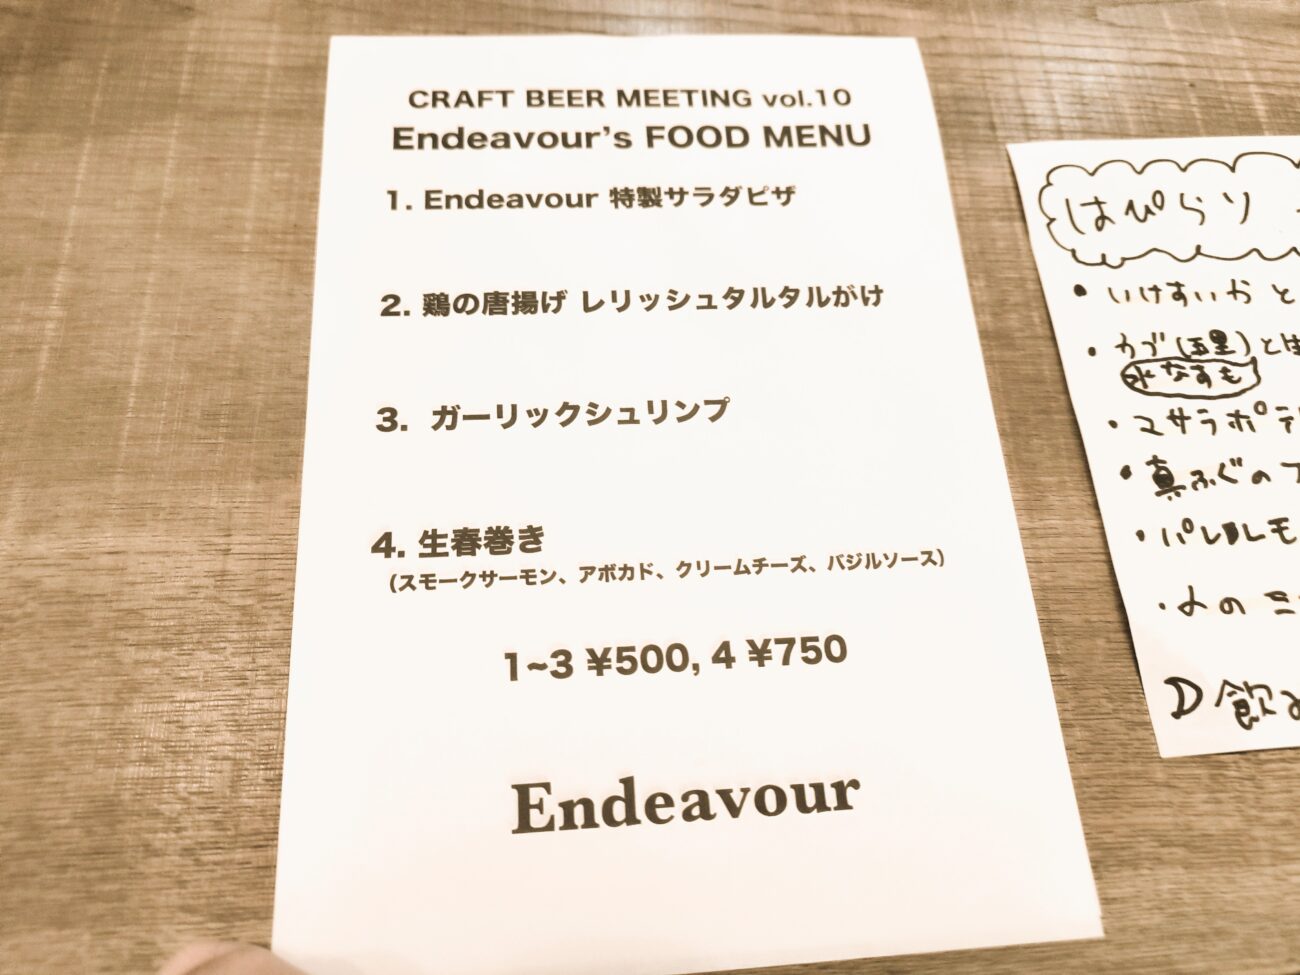 CRAFT BEER MEETING vol.10
Endeavour's FOOD MENU
1. Endeavour 特製サラダピザ
2. 鶏の唐揚げ レリッシュタルタルがけ
3. ガーリックシュリンプ
4. 生春巻き
(スモークサーモン、アボカド、クリームチーズ、バジルソース)
1~3 ¥500, 4 ¥750
Endeavour
はぴらり
• いけすいか と
• カブ ( ) と
水なすも
• マサラポテ
• 真ふぐの
• パレルモ
• の ミ
D 飲み